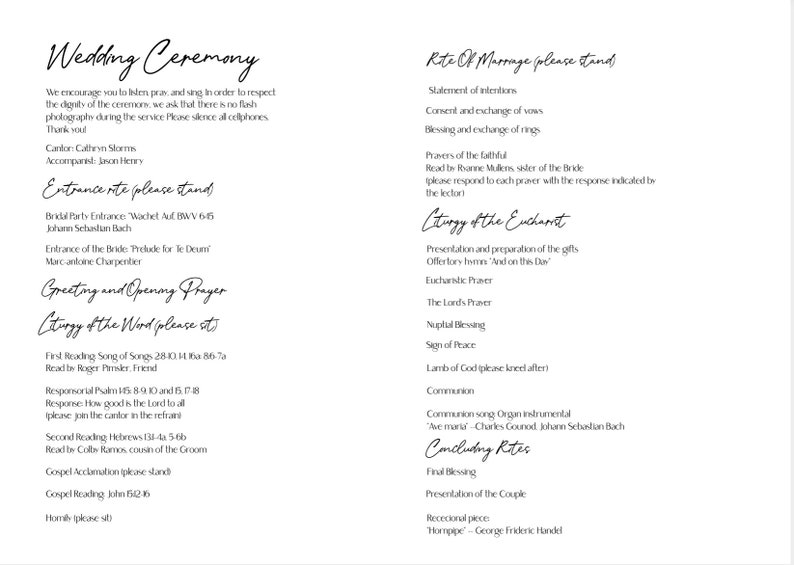 Wedding Ceremony
We encourage you to listen, pray, and sing. In order to respect
the dignity of the ceremony, we ask that there is no flash
photography during the service Please silence all cellphones,
Thank you!
Cantor: Cathryn Storms
Accompanist: Jason Henry
Entrance rite (please stand)
Bridal Party Entrance: "Wachet Auf, BWV 645
Johann Sebastian Bach
Entrance of the Bride: "Prelude for Te Deum"
Marc-antoine Charpentier
Greeting and Opening Prayer
Liturgy of the Word (please sit)
First Reading: Song of Songs 2:8-10, 14, 16a: 8:6-7a
Read by Roger Pimsler, Friend
Responsorial Psalm 145: 8-9, 10 and 15, 17-18
Response: How good is the Lord to all
(please join the cantor in the refrain)
Second Reading: Hebrews 13:1-4a, 5-6b
Read by Colby Ramos, cousin of the Groom
Gospel Acclamation (please stand)
Gospel Reading: John 15:12-16
Homily (please sit)
Rite Of Marriage (please stand)
Statement of intentions
Consent and exchange of vows
Blessing and exchange of rings
Prayers of the faithful
Read by Ryanne Mullens, sister of the Bride
(please respond to each prayer with the response indicated by
the lector)
Liturgy of the Eucharist
Presentation and preparation of the gifts
Offertory hymn: "And on this Day"
Eucharistic Prayer
The Lord's Prayer
Nuptial Blessing
Sign of Peace
Lamb of God (please kneel after)
Communion
Communion song: Organ instrumental
"Ave maria" --Charles Gounod, Johann Sebastian Bach
Concluding Rites
Final Blessing
Presentation of the Couple
Rececional piece:
"Hornpipe" -- George Frideric Handel